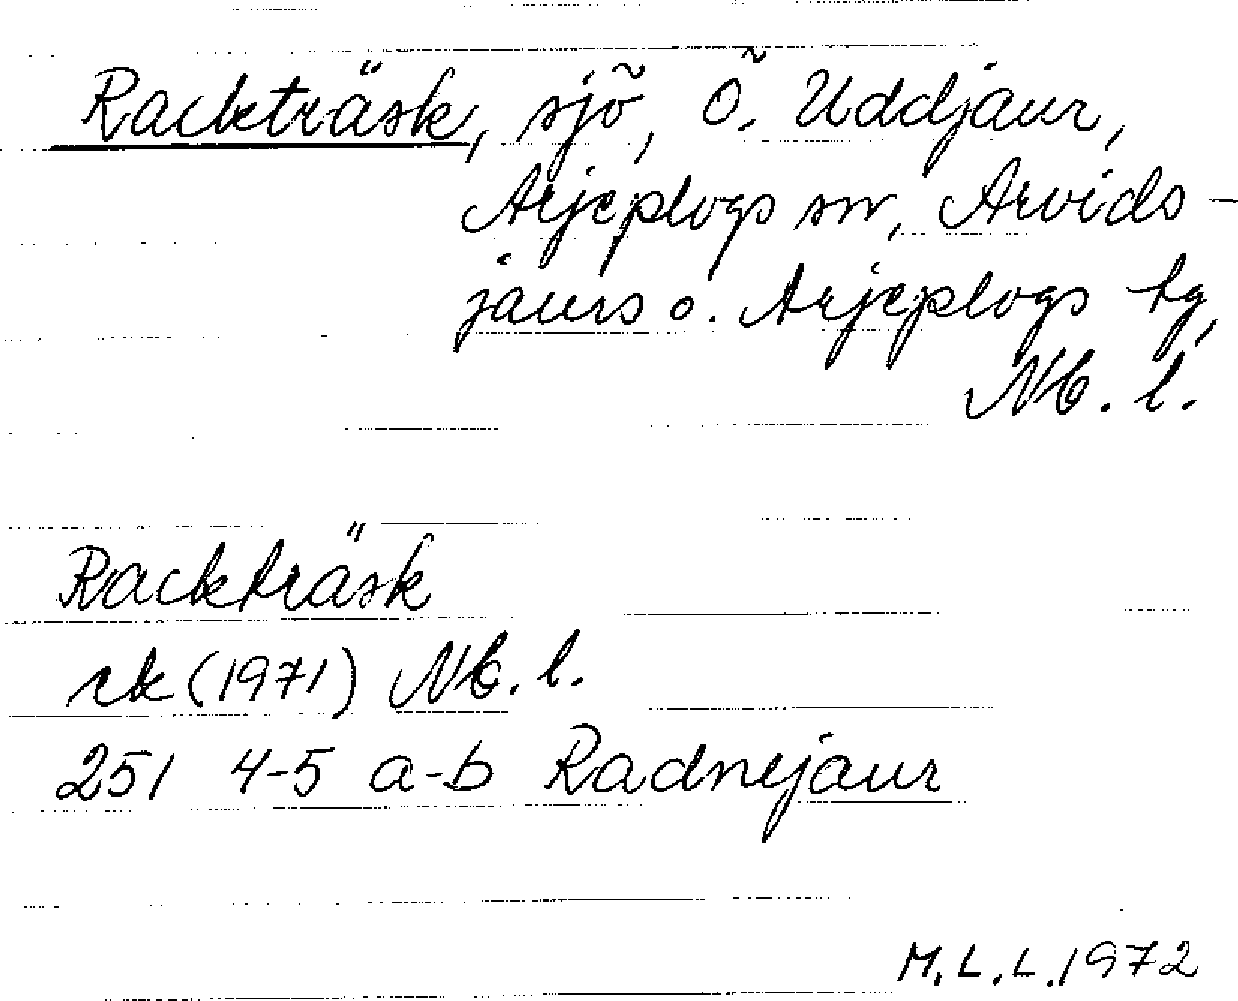 Rackträsk, sjö, Ö. Uddjaur,
Arjeplogs sn, Arvids-
jaurs o. Arjeplogs tg,
Nb. l.
Rackträsk
ek (1971) Nb. l.
251 4-5 a-b Radnejaur
M.L.L. 1972